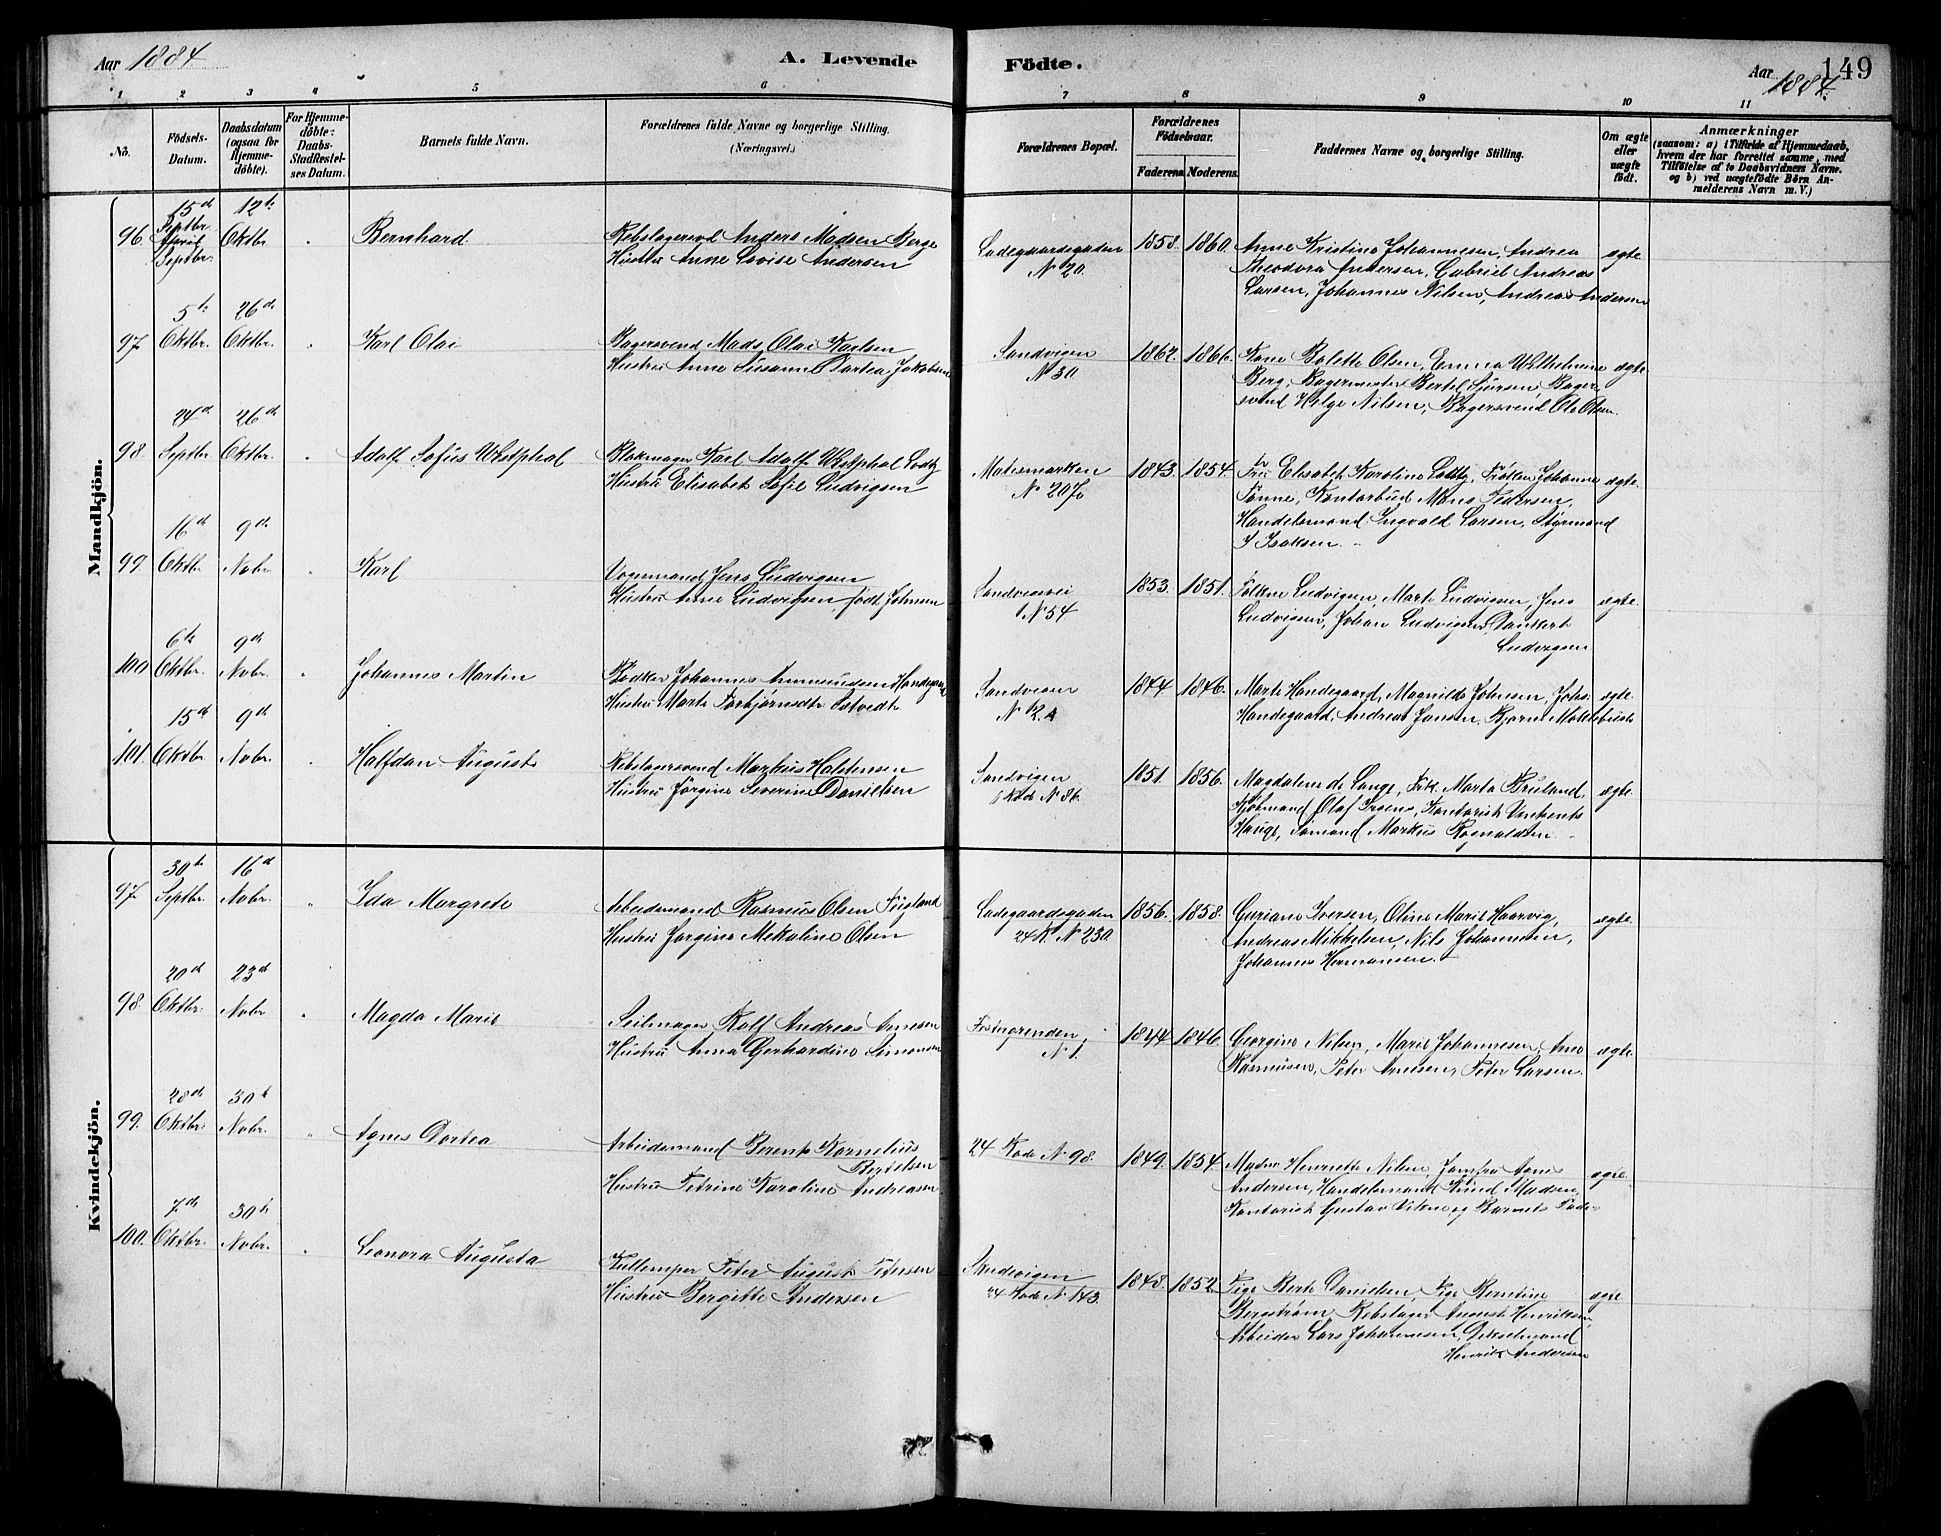 Aar 1884
A. Levende
Födte.
Aar 1884.
149
1 2 3 4 5 6 7 8 9 10 11
No.
Födsels-Datum.
Daabsdatum (ogsaa for Hjemme-døbte).
For Hjemme-døbte: Daabs-Stadfæstel-ses Datum.
Barnets fulde Navn.
Forældrenes fulde Navne og borgerlige Stilling. (Næringsvei.)
Forældrenes Bopæl.
Forældrenes Födselsaar.
Faderens Moderens
Faddernes Navne og borgerlige Stilling.
Om ægte eller uægte födt.
Anmærkninger
(saasom: a) i Tilfælde af Hjemmedaab,
hvem der har forrettet samme, med
Tilföielse af to Daabsvidners Navne.
og b) ved uægtefödte Börn An-
melderens Navn m. V.)
Mandkjön.
96. 15d Septbr. 12te Oktbr. Bernhard
Rebslagersvd Anders Madsen Berge
Hustru Anne Lovise Andersen
Ladegaardsgaden
N 20.
1858. 1860.
Anne Kristine Johannesen, Andrea
Theodora Andersen, Gabriel Andreas
Larsen, Johannes Nilsen, Andreas Andersen
ægte.
97. 5te Oktbr. 26de Oktbr. Karl Olai
Bagersvend Mads Olai Karlsen
Hustru Anne Susanne Dortea Jakobsen
Sandvigen
N 30.
1862. 1866.
Kone Bolette Olsen, Emma Wilhelmine
Berg, Bagermester Bertel Sjursen, Bager-
svend Helge Nilsen, Bagersvend Ole Olsen.
ægte
98. 24d Septbr. 26de Oktbr. Adolf Sofus Westphal
Blokmager Karl Adolf Westphal Lodtz
Hustru Elisabet Sofie Ludvigsen
N 207b
1843. 1854.
Fru Elisabet Karoline Lodtz, Frøken Johanne
Tønne, Kontorbud Mons Pedersen,
Handelsmand Ingvald Larsen, Styrmand
I Isaksen.
ægte.
99. 16de Oktbr. 9de Nobr. Karl
Vognmand Jens Ludvigsen
Hustru Anne Ludvigsen, født Johnsen
Sandvigsvei
N 54
1853. 1851.
Ludvigsen, Marte Ludvigsen, Jens
Ludvigsen, Johan Ludvigsen, Dankert
Ludvigsen
ægte.
100 6te Oktbr. 9de Nobr. Johannes Martin
Bødker Johannes Ammundsen Handegaard
Hustru Marte Torbjørnsdtr
Sandvigen
N 2.
1844 1846.
Marte Handegaard, Magnilde Johnesen, Johs.
Handegaard, Andreas Jansen, Bjørn
ægte.
101. 15de Oktbr. 9de Nobr. Halfdan August
Rebslagersvend Markus Halstensen
Hustru Jørgine Severine Danielsen
Sandvigen
Rode N 86.
1851. 1856.
Magdalene de Lange, Frk. Marta Bruland,
Kjøbmand Olaf Irgens, Kontorist
Hauge, Sømand Markus Rognaldsen.
ægte.
Kvindekjön.
97. 30te Septbr. 16de Nobr. Ida Margrete
Arbeidsmand Rasmus Olsen
Hustru Jørgine Mekaline Olsen
Ladegaardsgaden
24 R. N 230.
1856. 1858.
Guriane Iversen, Oline Marie Haarvig,
Andreas Mikkelsen, Nils Johannesen,
Johannes Hermansen.
ægte.
98 20de Oktbr. 23de Nobr Magda Marie
Seilmager Rolf Andreas Arnesen
Hustru Anna Gerhardine Simonsen
N 1.
1844 1846.
Georgine Nilsen, Marie Johannesen, Arne
Rasmusen, Peter Arnesen, Peter Larsen.
ægte.
99. 28de Oktbr. 30te Nobr. Agnes Dortea
Arbeidsmand Berent Kornelius
Bertelsen
Hustru Petrine Karoline Andreasen.
24 Rode N 98.
1849. 1854
Madm. Henriette Nilsen, Jomfru Agnes
Andersen, Handelsmand Knud Madsen,
Kontorist Gustav og Barnets Fader
ægte.
100. 7de Oktbr. 30te Nobr. Leonora Augusta
Peter August Pedersen
Hustru Bergitte Andersen
Sandvigen
24 Rode N 143.
1848. 1852
Pige Berte Danielsen, Pige Berntine
Bergstrøm, Rebslager August Henriksen,
Arbeider Lars Johannesen,
Henrik Andersen
ægte